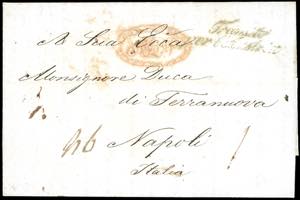 A Sua Ecca
Monsignore Duca
di Terranuova
Napoli
Italia